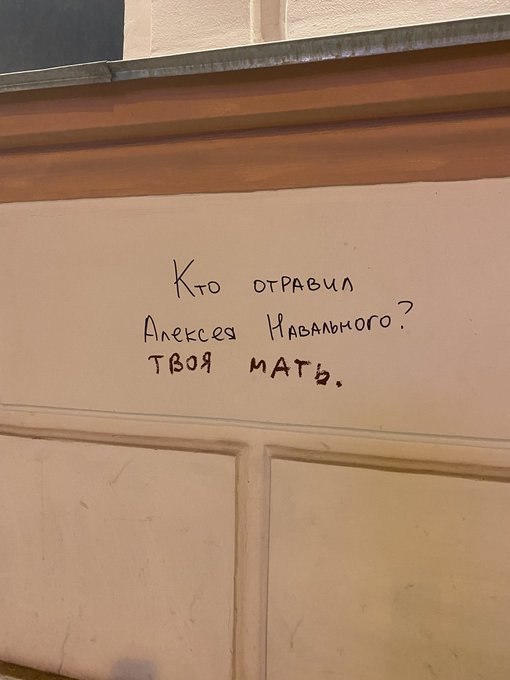 Кто отравил
Алексея Навального?
ТВОЯ МАТЬ.